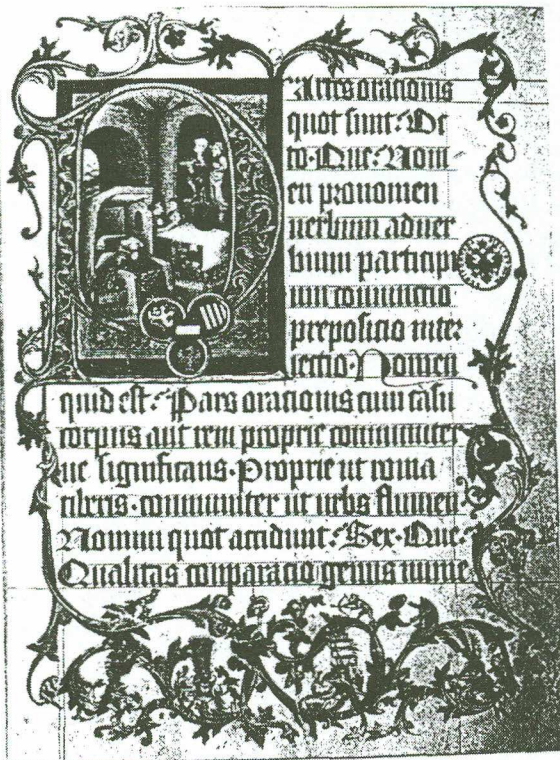 PArtes orationis
quot sunt? Oc
to. Que? Nom
en pronomen
uerbum aduer
bium participi
um coniunctio
prepositio inter
iectio. Nomen
quid est? Pars orationis cum casu
corpus aut rem proprie communiter
ue significans. Proprie ut roma
tibris. communiter ut urbs flumen.
Nomini quot accidunt? Sex. Que?
Qualitas comparatio genus nume